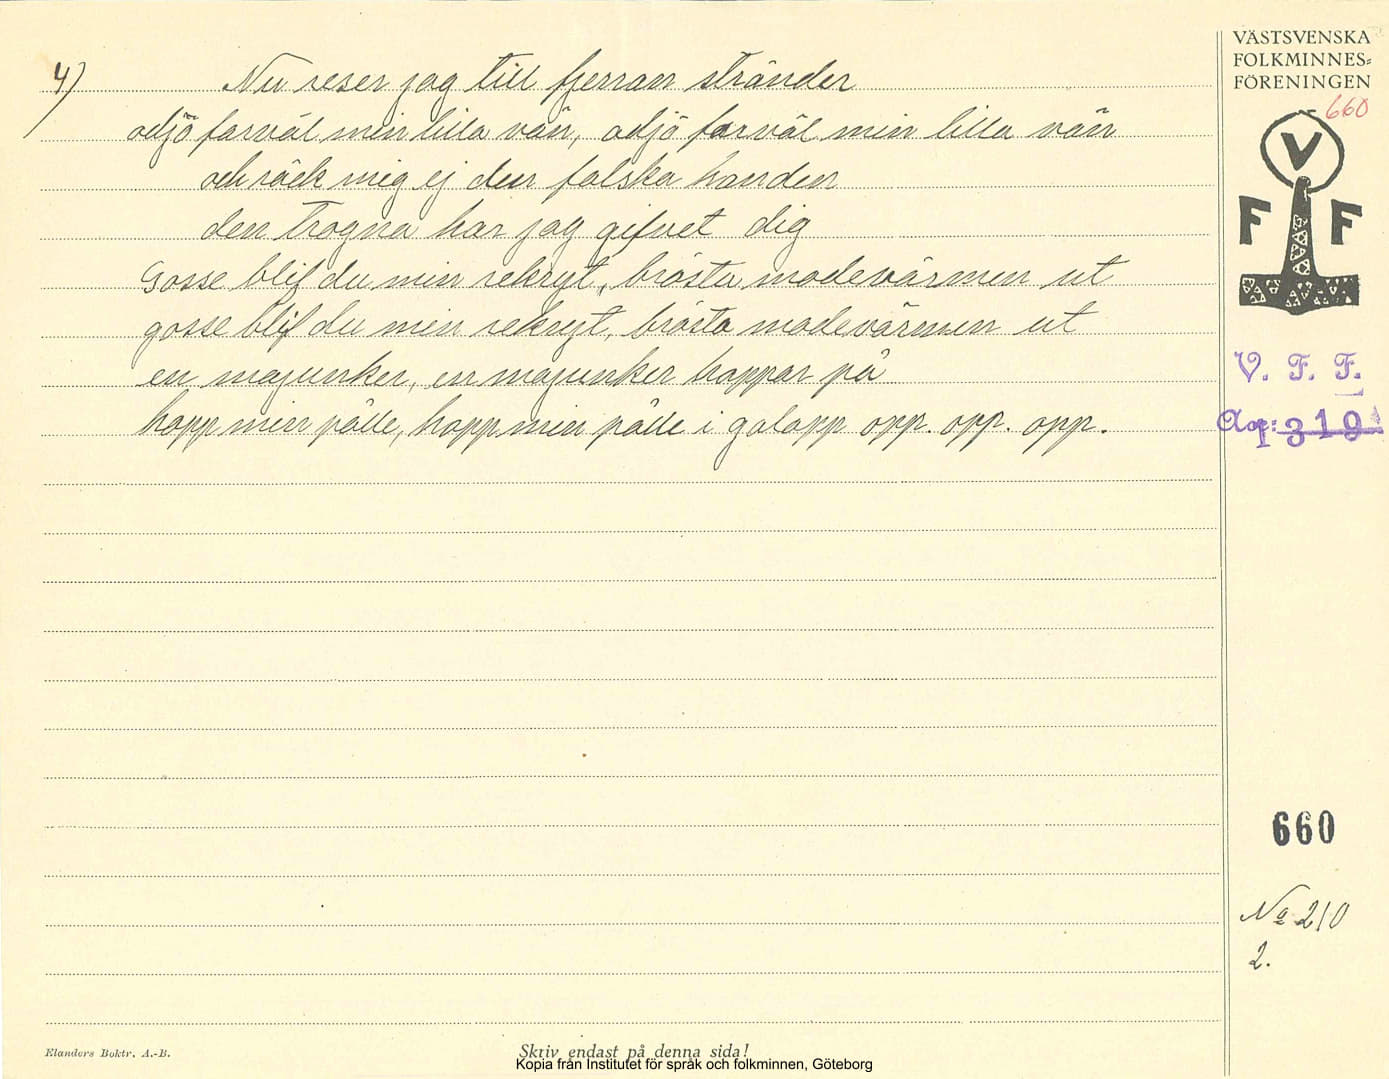 4) Nu reser jag till fjerran stränder
adjö farväl min lilla vän, adjö farväl min lilla vän
och räck mig ej den falska handen
den trogna har jag gifvet dig
Gosse blif du min rekryt, brösta modevärmen ut
gosse blif du min rekryt, brösta modevärmen ut
en majunker, en majunker hoppar på
hopp min pålle, hopp min pålle i galopp opp. opp. opp.
VÄSTSVENSKA
FOLKMINNES=
FÖRENINGEN
660
V
F F
V. F. F.
1319
660
No 210
2.
Elanders Boktr. A.-B.
Skriv endast på denna sida!
Kopia från Institutet för språk och folkminnen, Göteborg